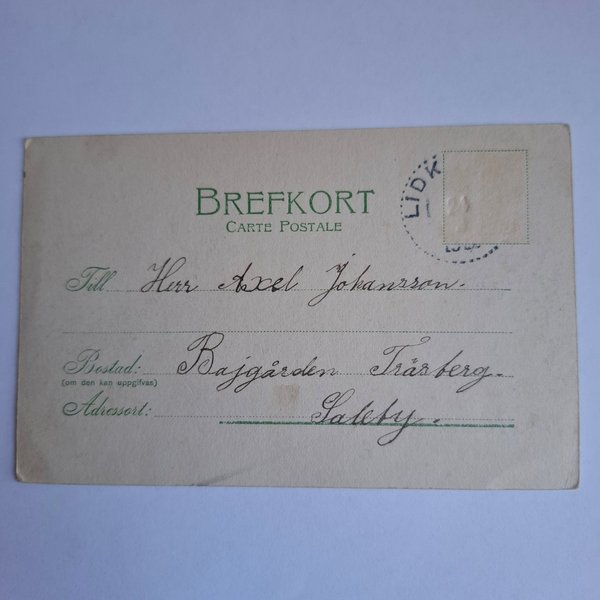 BREFKORT
CARTE POSTALE
LIDK
Till Herr Axel Johansson.
Bostad: Bajgården Träsberg.
(om den kan uppgifvas)
Adressort: Saleby.